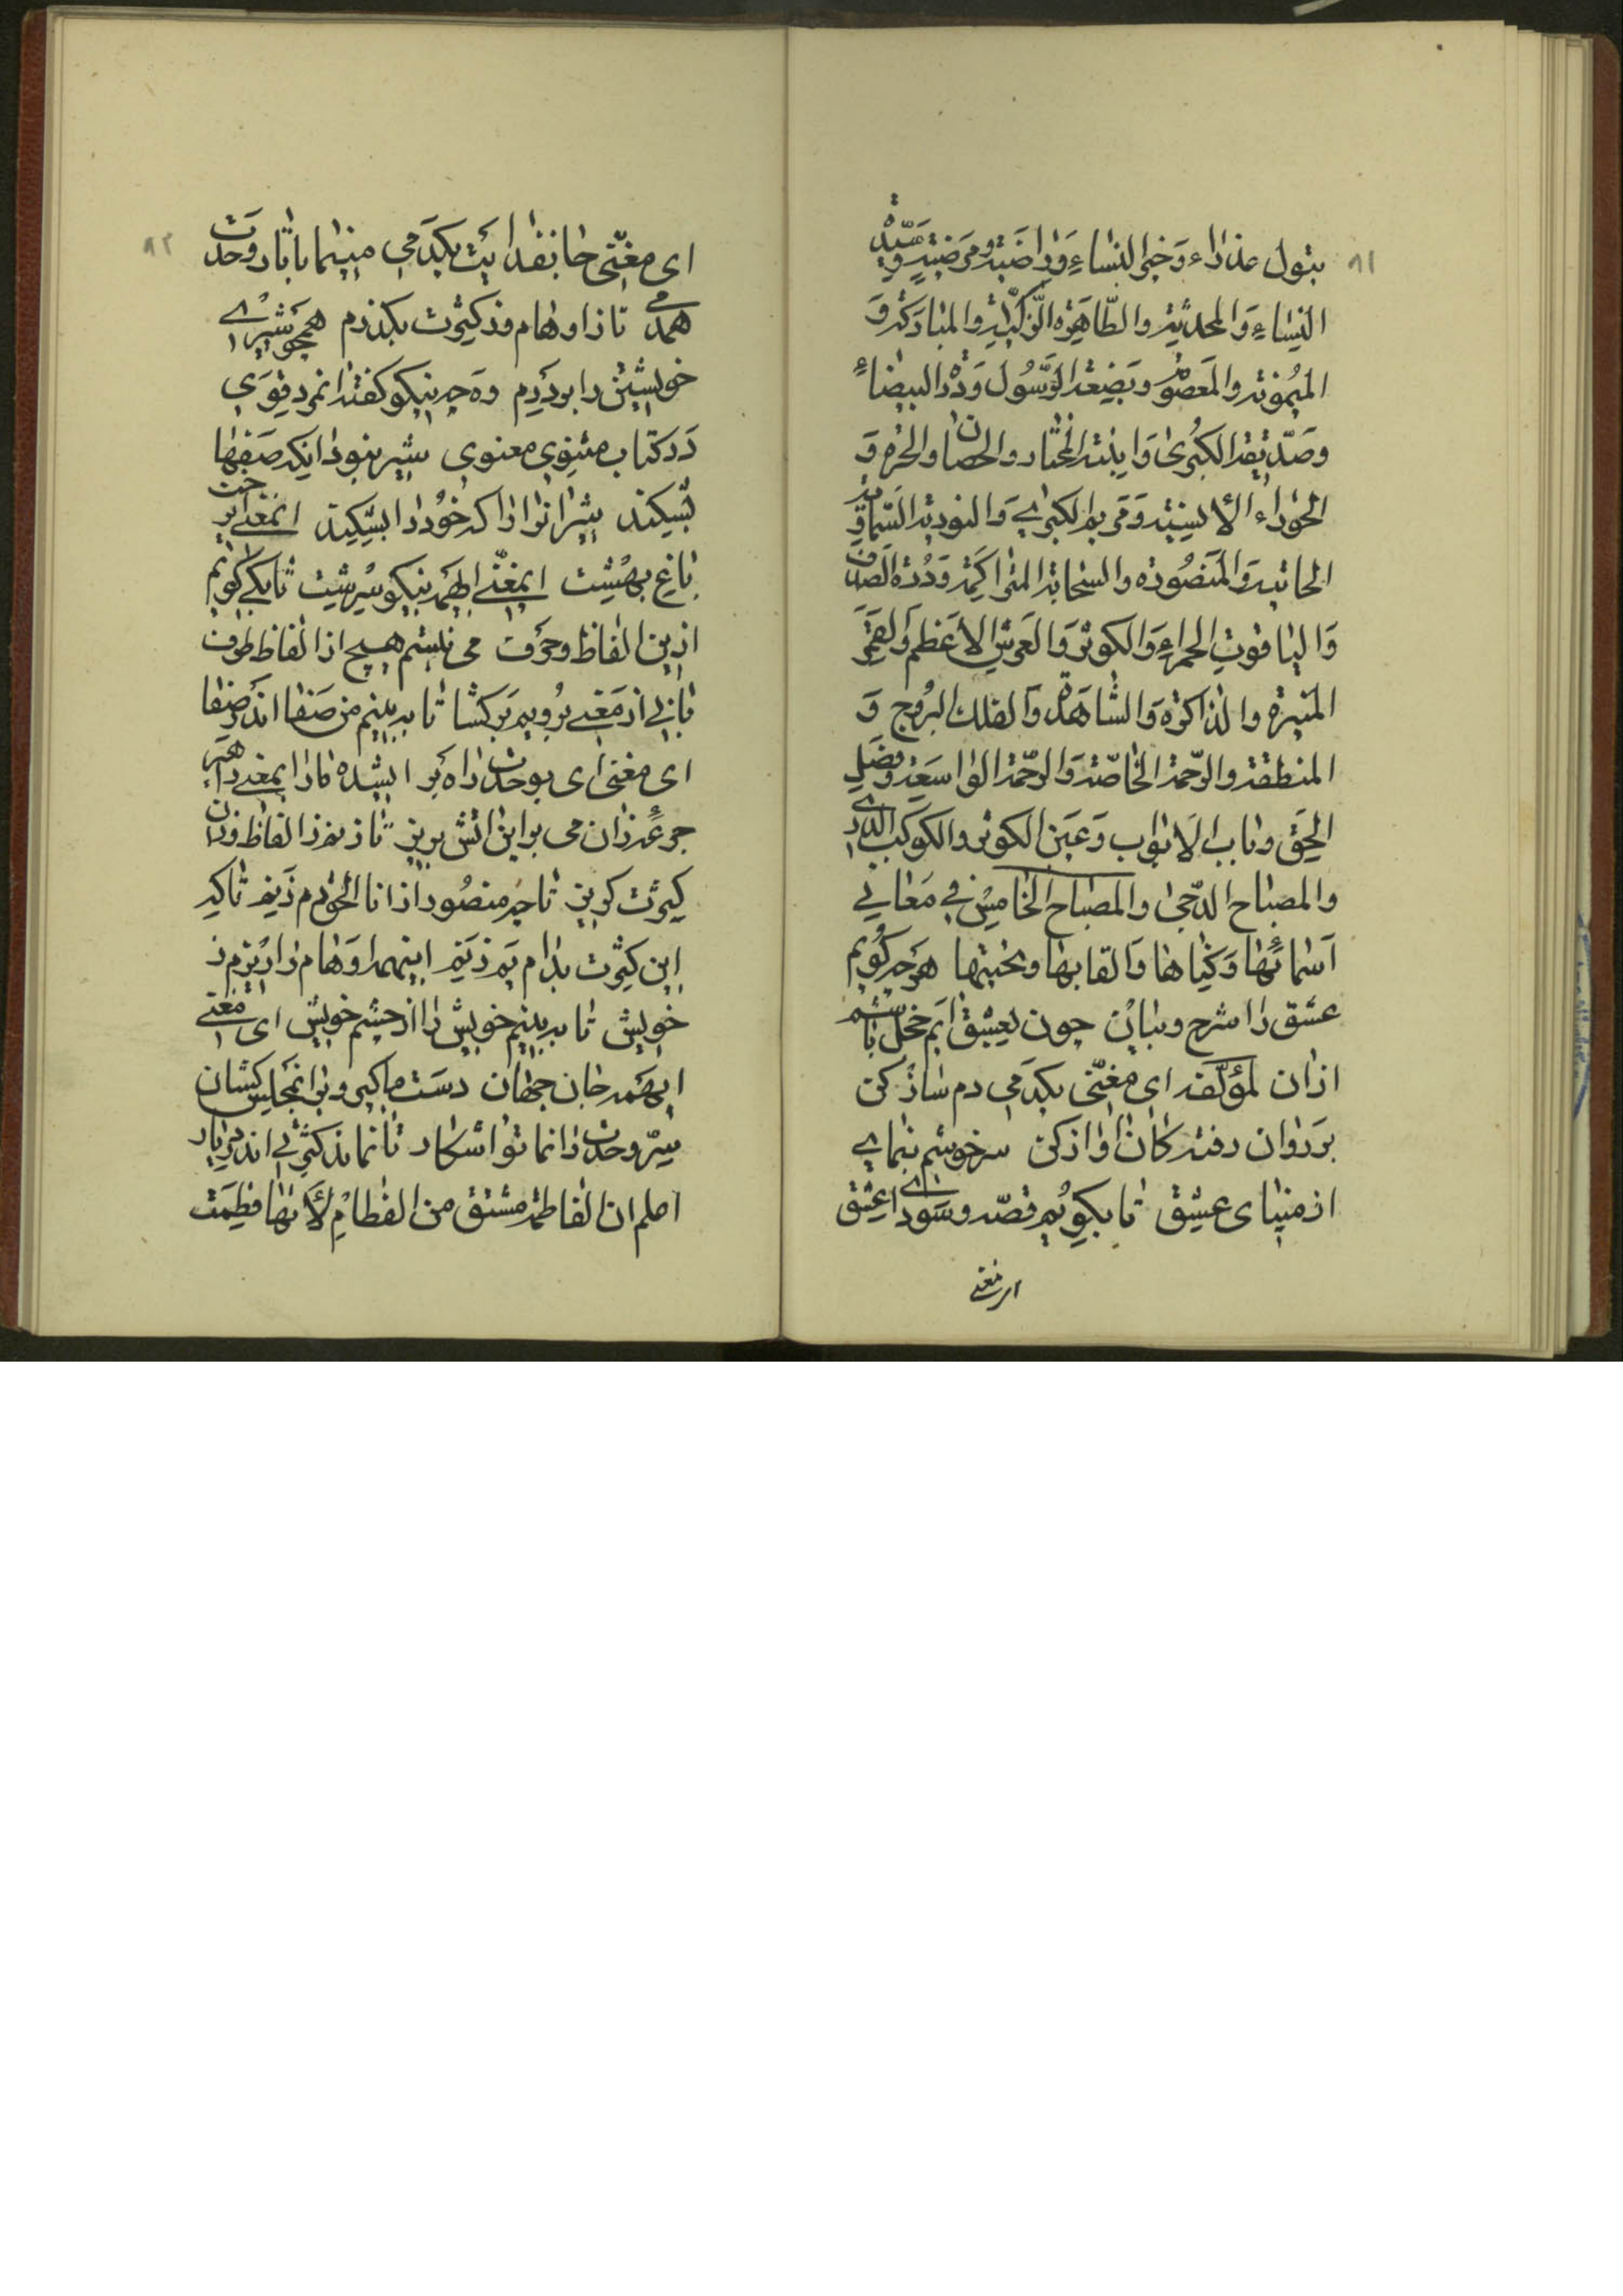 ۸۱
بتول عذراء وَخَیر النساءِ وَراضیة ومرضیة وسیّدة
النِساءِ وَالمحدّثة والطّاهِرة الزّکیّة والمبارکة وَ
المیمُونة والمَعصُومة وبَضعَة الرّسُول وَدُرّة البیضاءِ
وصَدّیقة الکبرىٰ وَابنة المختار والحصان والحُرّه وَ
الحَوراء الأنسِیّة وَمَریم الکبرىٰ وَالنوریة السّماویّة
الحانیة وَالمنصُوره والسّحابة المتراکمة وَدُرّة الصدف
وَالیاقوتِ الحمراءِ وَالکوثر وَالعَرشِ الأعظم وَالقَمَر
المنیرة والذاکرة وَالشاهدة وَالفلك البرُوج وَ
المنطقة والرّحمة الخاصّة وَالرحمة الواسعَة وفضلِ
الحَقّ وباب الابواب وَعَین الکوثر والکوکب الدُرّی
والمصباح الدّجىٰ والمصباح الخامِس فی مَعانی
أسمائها وَکنیاها وَالقابها ومحبّتها هرچه گویم
عشق را شرح وبیان چون بعشق آیم خجل باشم
ازان لمؤلّفه ای مغنّی یکدمی دم ساز کن
برروان رفته کان آواز کن سرخوشم بنمای
از مینای عشق تا بگویم قصّه وسودای عشق
ای مغنّی
۸۲
ای مغنّی جان بفدایت یکدمی مینما با تار وحدت
همدمی تا ز اوهام وز کثرت بگذرم همچو شیری
خویشتن را بردرم وه چه نیکو گفته انمرد قوی
دَر کتاب مثنوی معنوی شیر نبود اینکه صفها
بشکند شیر انرا دان که خود را بشکند ایمغنّی ای درخت
باغ بهشت ایمغنّی ای همه نیکو سرشت تا بکی گویم
ازین الفاظ وحرف می نبستم هیچ از الفاظ طرف
بابی از مَعنی برویم برگشا تا به بینم من صفا اندر صفا
ای مغنّی ای بوحدت راه بر ای شده مارا بمعنی راهبر
جرعهٔ زان می برین آتش بریز تا زنم زالفاظ وزان
کثرت گریز تا چه منصور از انا الحق دم زنم تا که
این کثرت بدام یم زنم اینهمه اوهام را ریزم ز
خویش تا به بینم خویش را از چشم خویش ای مغنّی
ایهمه جان جهان دست ما گیر وبرآن مجلس کشان
سِرّ وحدت را نما تو آشکار تا نماند کثرتی اندر دیار
اعلم ان الفاطمة مشتق من الفطام لأنّها فطِمَت